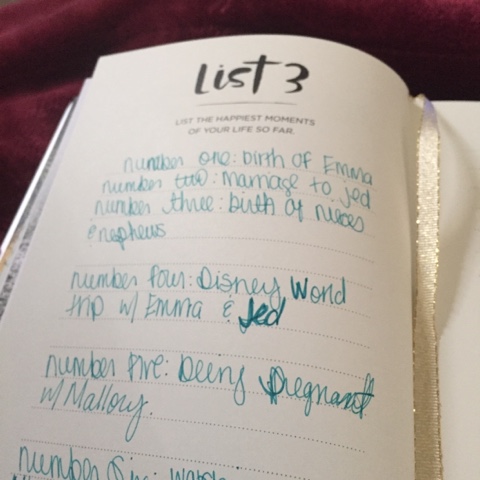 List 3
LIST THE HAPPIEST MOMENTS
OF YOUR LIFE SO FAR.
number one: birth of Emma
number two: marriage to jed
number three: birth of nieces
& nephews
number four: Disney World
trip w/ Emma & Jed
number five: being pregnant
w/ Mallory.
number six: